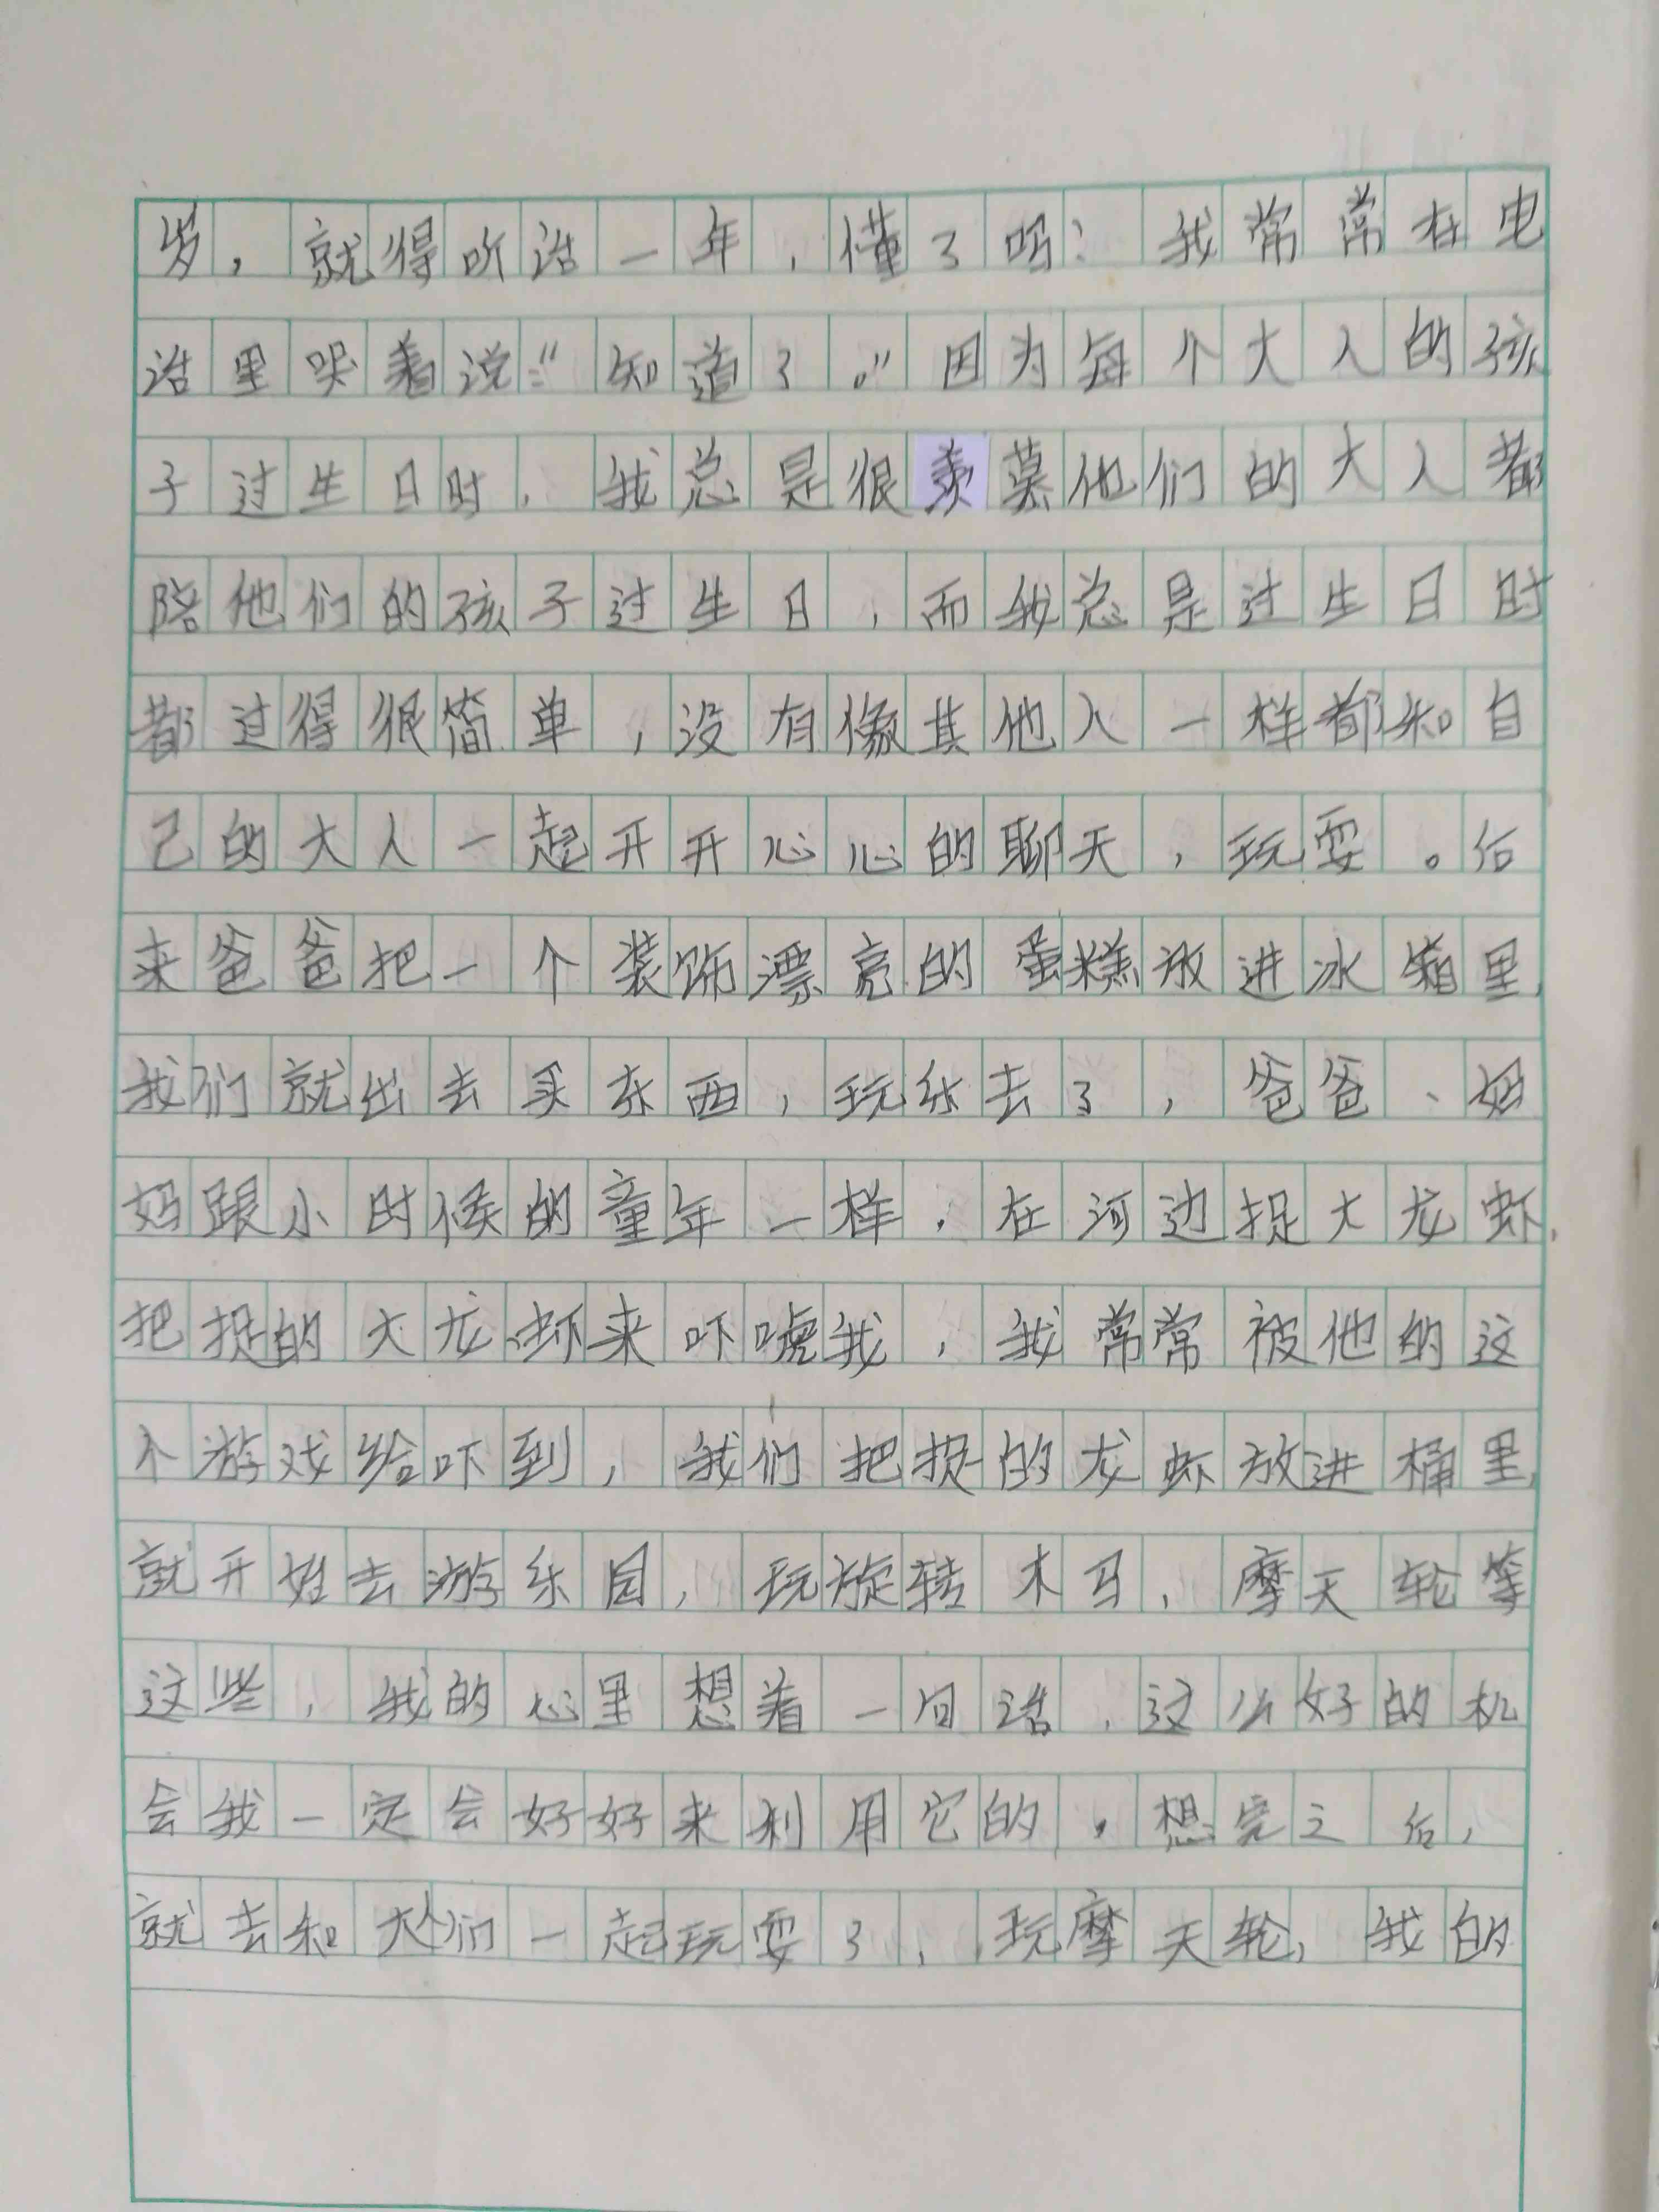 岁，就得听话一年，懂了吗？我常常在电
话里哭着说：“知道了。”因为每个大人的孩
子过生日时，我总是很羡慕他们的大人都
陪他们的孩子过生日，而我总是过生日时
都过得很简单，没有像其他人一样都和自
己的大人一起开开心心的聊天，玩耍。后
来爸爸把一个装饰漂亮的蛋糕放进冰箱里，
我们就出去买东西，玩乐去了，爸爸、妈
妈跟小时候的童年一样，在河边捉大龙虾，
把捉的大龙虾来吓唬我，我常常被他的这
个游戏给吓到，我们把捉的龙虾放进桶里，
就开始去游乐园，玩旋转木马，摩天轮等
这些，我的心里想着一句话，这么好的机
会我一定会好好来利用它的，想完之后，
就去和大人们一起玩耍了，玩摩天轮，我的